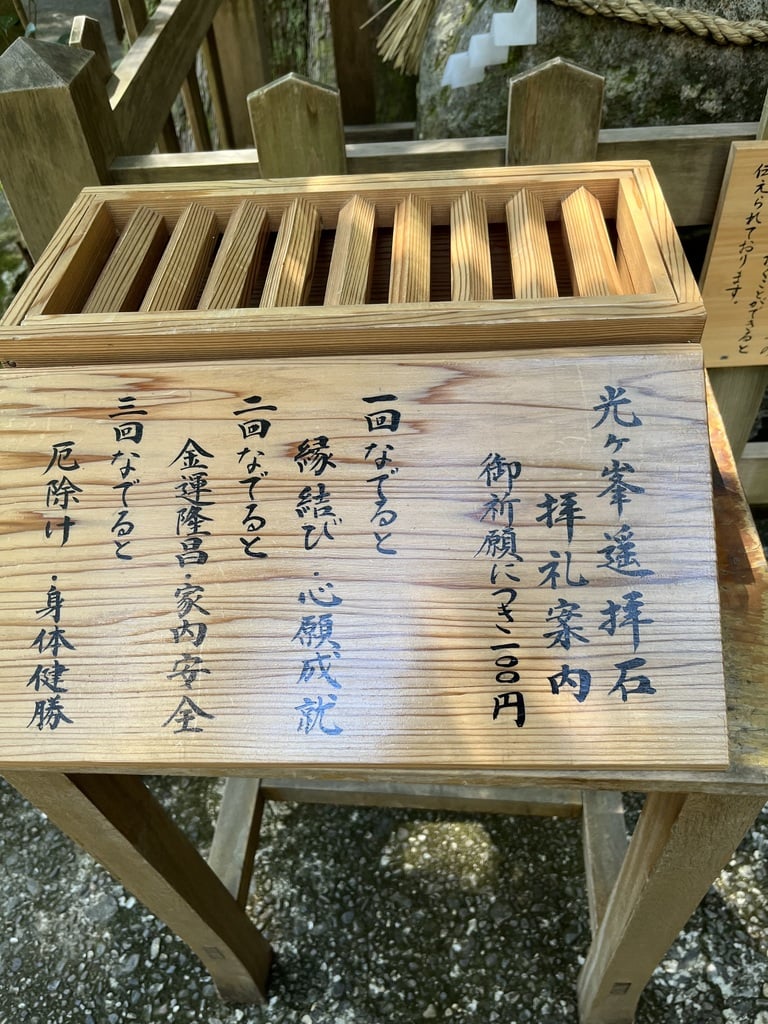 光ヶ峯遥拝石
拝礼案内
御祈願につき二〇〇円
一回なでると
縁結び・心願成就
二回なでると
金運隆昌・家内安全
三回なでると
厄除け・身体健勝
ことができると
伝えられております。